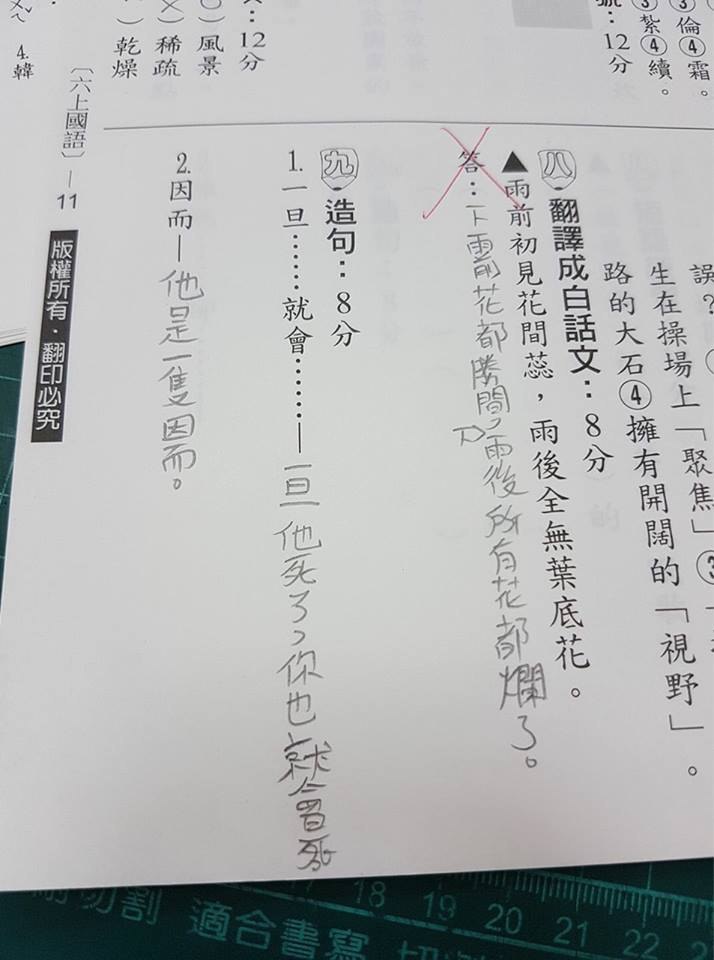 ③紮④續。
③倫④霜。
號：12分
文：12分
〇）風景
╳）稀疏
）乾燥
4.韓
〔六上國語〕—11
版權所有．翻印必究
誤？
生在操場上「聚焦」③
路的大石④擁有開闊的「視野」。
八．翻譯成白話文：8分
▲雨前初見花間蕊，雨後全無葉底花。
答：下雨前花都勝間刀，雨後所有花都爛了。
九．造句：8分
1.一旦……就會……—一旦他死了，你也就會死
2.因而—他是一隻因而。
切割 適合書寫 切
17 18 19 20 21 22